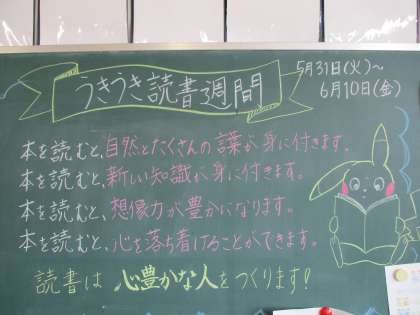 うきうき読書週間
5月31日(火)〜
6月10日(金)
本を読むと、自然とたくさんの言葉が身に付きます。
本を読むと、新しい知識が身に付きます。
本を読むと、想像力が豊かになります。
本を読むと、心を落ち着けることができます。
読書は心豊かな人をつくります!